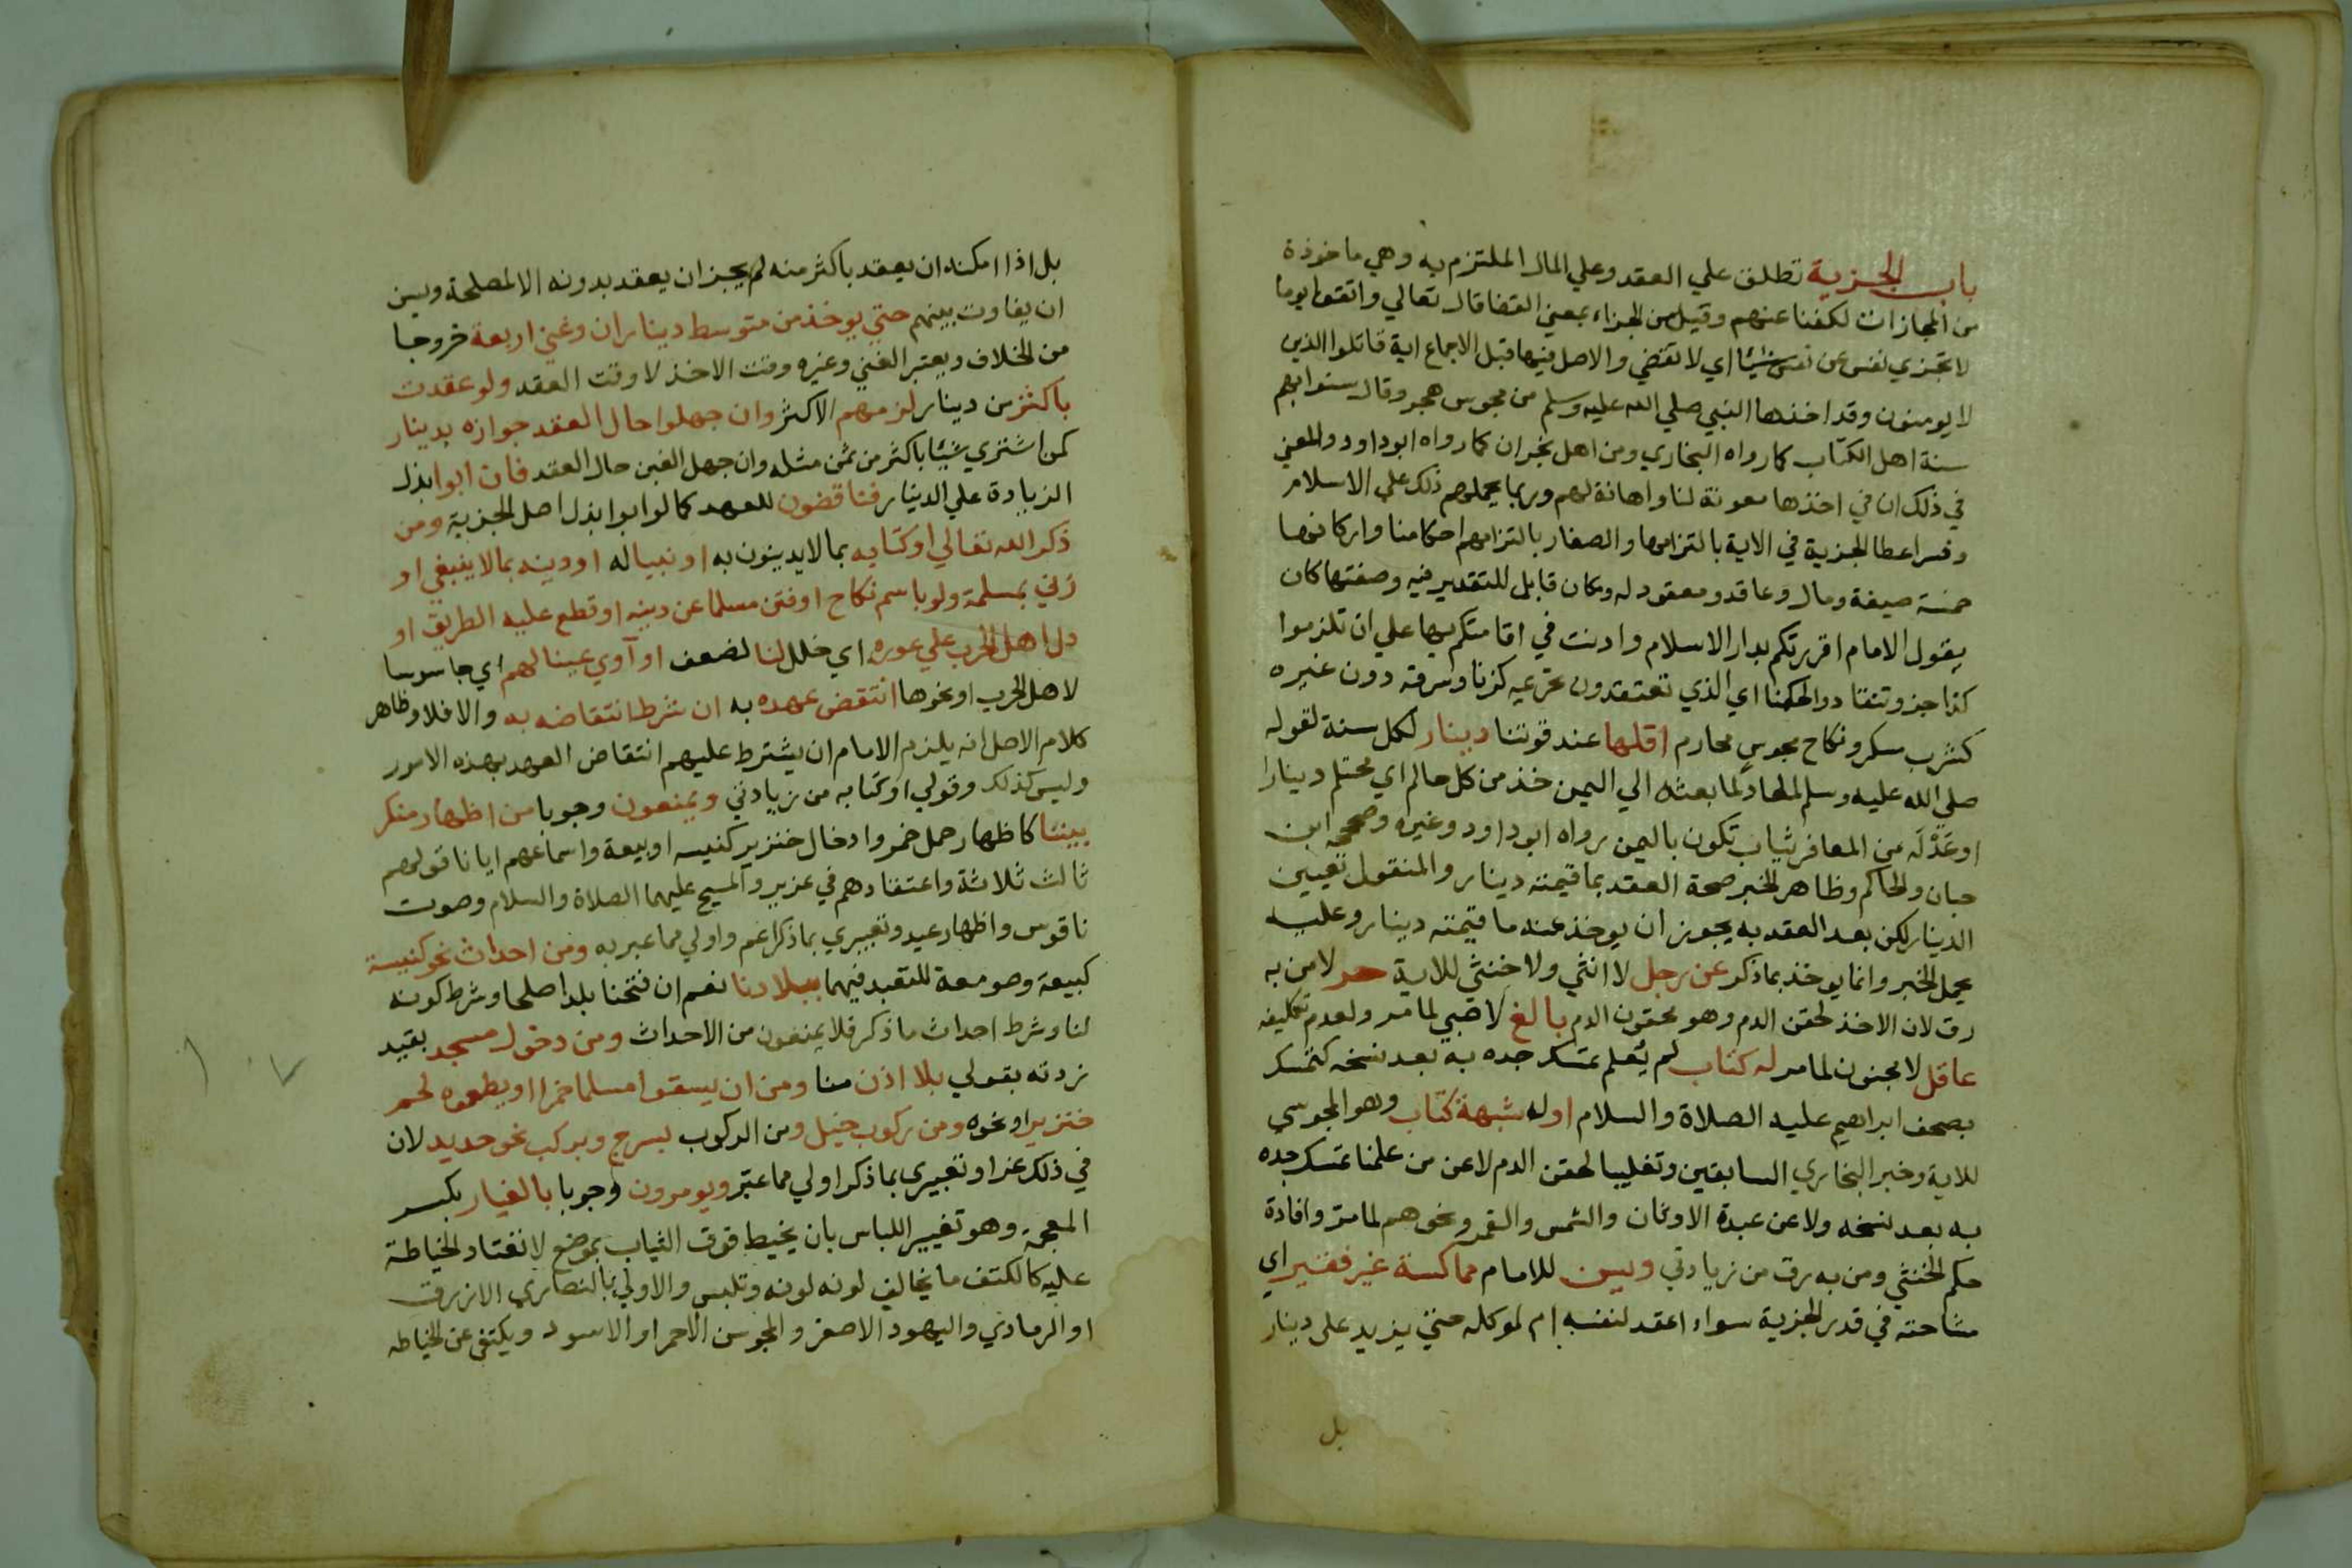 باب الجزية تطلق علي العقد وعلي المال الملتزم به وهي ماخوذة
من المجازات لكفنا عنهم وقيل من الجزاء بمعني القضا قال تعالي واتقوا يوما
لا تجزي نفس عن نفس شيئا اي لا تقضي والاصل فيها قبل الاجماع اية قاتلوا الذين
لا يومنون وقد اخذها النبي صلي الله عليه وسلم من مجوس هجر وقال سنوا بهم
سنة اهل الكتاب كما رواه البخاري ومن اهل نجران كما رواه ابو داود والمعني
في ذلك ان في اخذها معونة لنا واهانة لهم وربما يحملهم ذلك علي الاسلام
وفسر اعطا الجزية في الاية بالتزامها والصغار بالتزامهم احكامنا واركانها
خمسة صيغة ومال وعاقد ومعقود له ومكان قابل للتقدير فيه وصفتها كان
يقول الامام اقررتكم بدار الاسلام واذنت في اقامتكم بها علي ان تلزموا
كذا جزو تنقادوا لحكمنا اي الذي تعتقدون تحريمه كزنا وسرقة دون غيره
كشرب مسكر ونكاح مجوس محارم اقلها عند قوتنا دينار لكل سنة لقوله
صلي الله عليه وسلم لمعاذ لما بعثه الي اليمن خذ من كل حالم اي محتلم دينارا
او عَدْلَه من المعافر ثياب تكون باليمن رواه ابو داود وغيره وصححه ابن
حبان والحاكم وظاهر الخبر صحة العقد بما قيمته دينار والمنقول تعيين
الدينار لكن بعد العقد به يجوز ان يوخذ عنه ما قيمته دينار وعليه
يحمل الخبر وانما يوخذ بما ذكر عن رجل لا انثي ولا خنثي للاية حر لا من به
رق لان الاخذ لحقن الدم وهو محقون الدم بالغ لا صبي لما مر ولعدم تكليفه
عاقل لا مجنون لما مر له كتاب لم يُعلم تمسك جده به بعد نسخه كتمسك
بصحف ابراهيم عليه الصلاة والسلام او له شبهة كتاب وهو المجوسي
للاية وخبر البخاري السابقين وتغليبا لحقن الدم لا عن من علمنا تمسك جده
به بعد نسخه ولا عن عبدة الاوثان والشمس والقمر ونحوهم لما مر وافادة
حكم الخنثي ومن به رق من زيادتي ويسن للامام مماكسة غير فقير اي
مشاحته في قدر الجزية سواء اعقد لنفسه ام لموكله حتي يزيد على دينار
بل
بل اذا امكنه ان يعقد باكثر منه لم يجز ان يعقد بدونه الا لمصلحة ويسن
ان يفاوت بينهم حتي يوخذ من متوسط ديناران وغني اربعة خروجا
من الخلاف ويعتبر الغني وغيره وقت الاخذ لا وقت العقد ولو عقدت
باكثر من دينار لزمهم الاكثر وان جهلوا حال العقد جوازه بدينار
كمن اشتري شيئا باكثر من ثمن مثله وان جهل الغبن حال العقد فان ابوا بذل
الزيادة علي الدينار فناقضون للعهد كما لو ابوا بذل اصل الجزية ومن
ذكر الله تعالي او كتابه بما لا يدينون به او نبيا له او دينه بما لا ينبغي او
زني بمسلمة ولو باسم نكاح او فتن مسلما عن دينه او قطع عليه الطريق او
دل اهل الحرب علي عوره اي خلل لنا لضعف او آوي عينا لهم اي جاسوسا
لاهل الحرب او نحوها انتقض عهده به ان شرط انتقاضه به والا فلا وظاهر
كلام الاصل انه يلزم الامام ان يشترط عليهم انتقاض العهد بهذه الامور
وليس كذلك وقولي او كتابه من زيادتي ويمنعون وجوبا من اظهار منكر
بيننا كاظهار حمل خمر وادخال خنزير كنيسه او بيعة واسماعهم ايانا قولهم
ثالث ثلاثة واعتقادهم في عزير والمسيح عليهما الصلاة والسلام وصوت
ناقوس واظهار عيد وتعبيري بما ذكر اعم واولي مما عبر به ومن احداث نحو كنيسة
كبيعة وصومعة للتعبد فيهما ببلادنا نعم ان فتحنا بلدا صلحا وشرط كونه
لنا وشرط احداث ما ذكر فلا يمنعون من الاحداث ومن دخول مسجد بقيد
زدته بقولي بلا اذن منا ومن ان يسقوا مسلما خمرا او يطعموه لحم
خنزير او نحوه ومن ركوب خيل ومن الركوب بسرج وبركب نحو حديد لان
في ذلك عزا وتعبيري بما ذكر اولي مما عبّر ويومرون وجوبا بالغيار بكسر
المعجمة وهو تغيير اللباس بان يخيط فوق الثياب بموضع لا تعتاد الخياطة
عليه كالكتف ما يخالف لونه لونه وتلبس والاولي بالنصاري الازرق
او الرمادي واليهود الاصفر والمجوس الاحمر او الاسود ويكتفى عن الخياطه